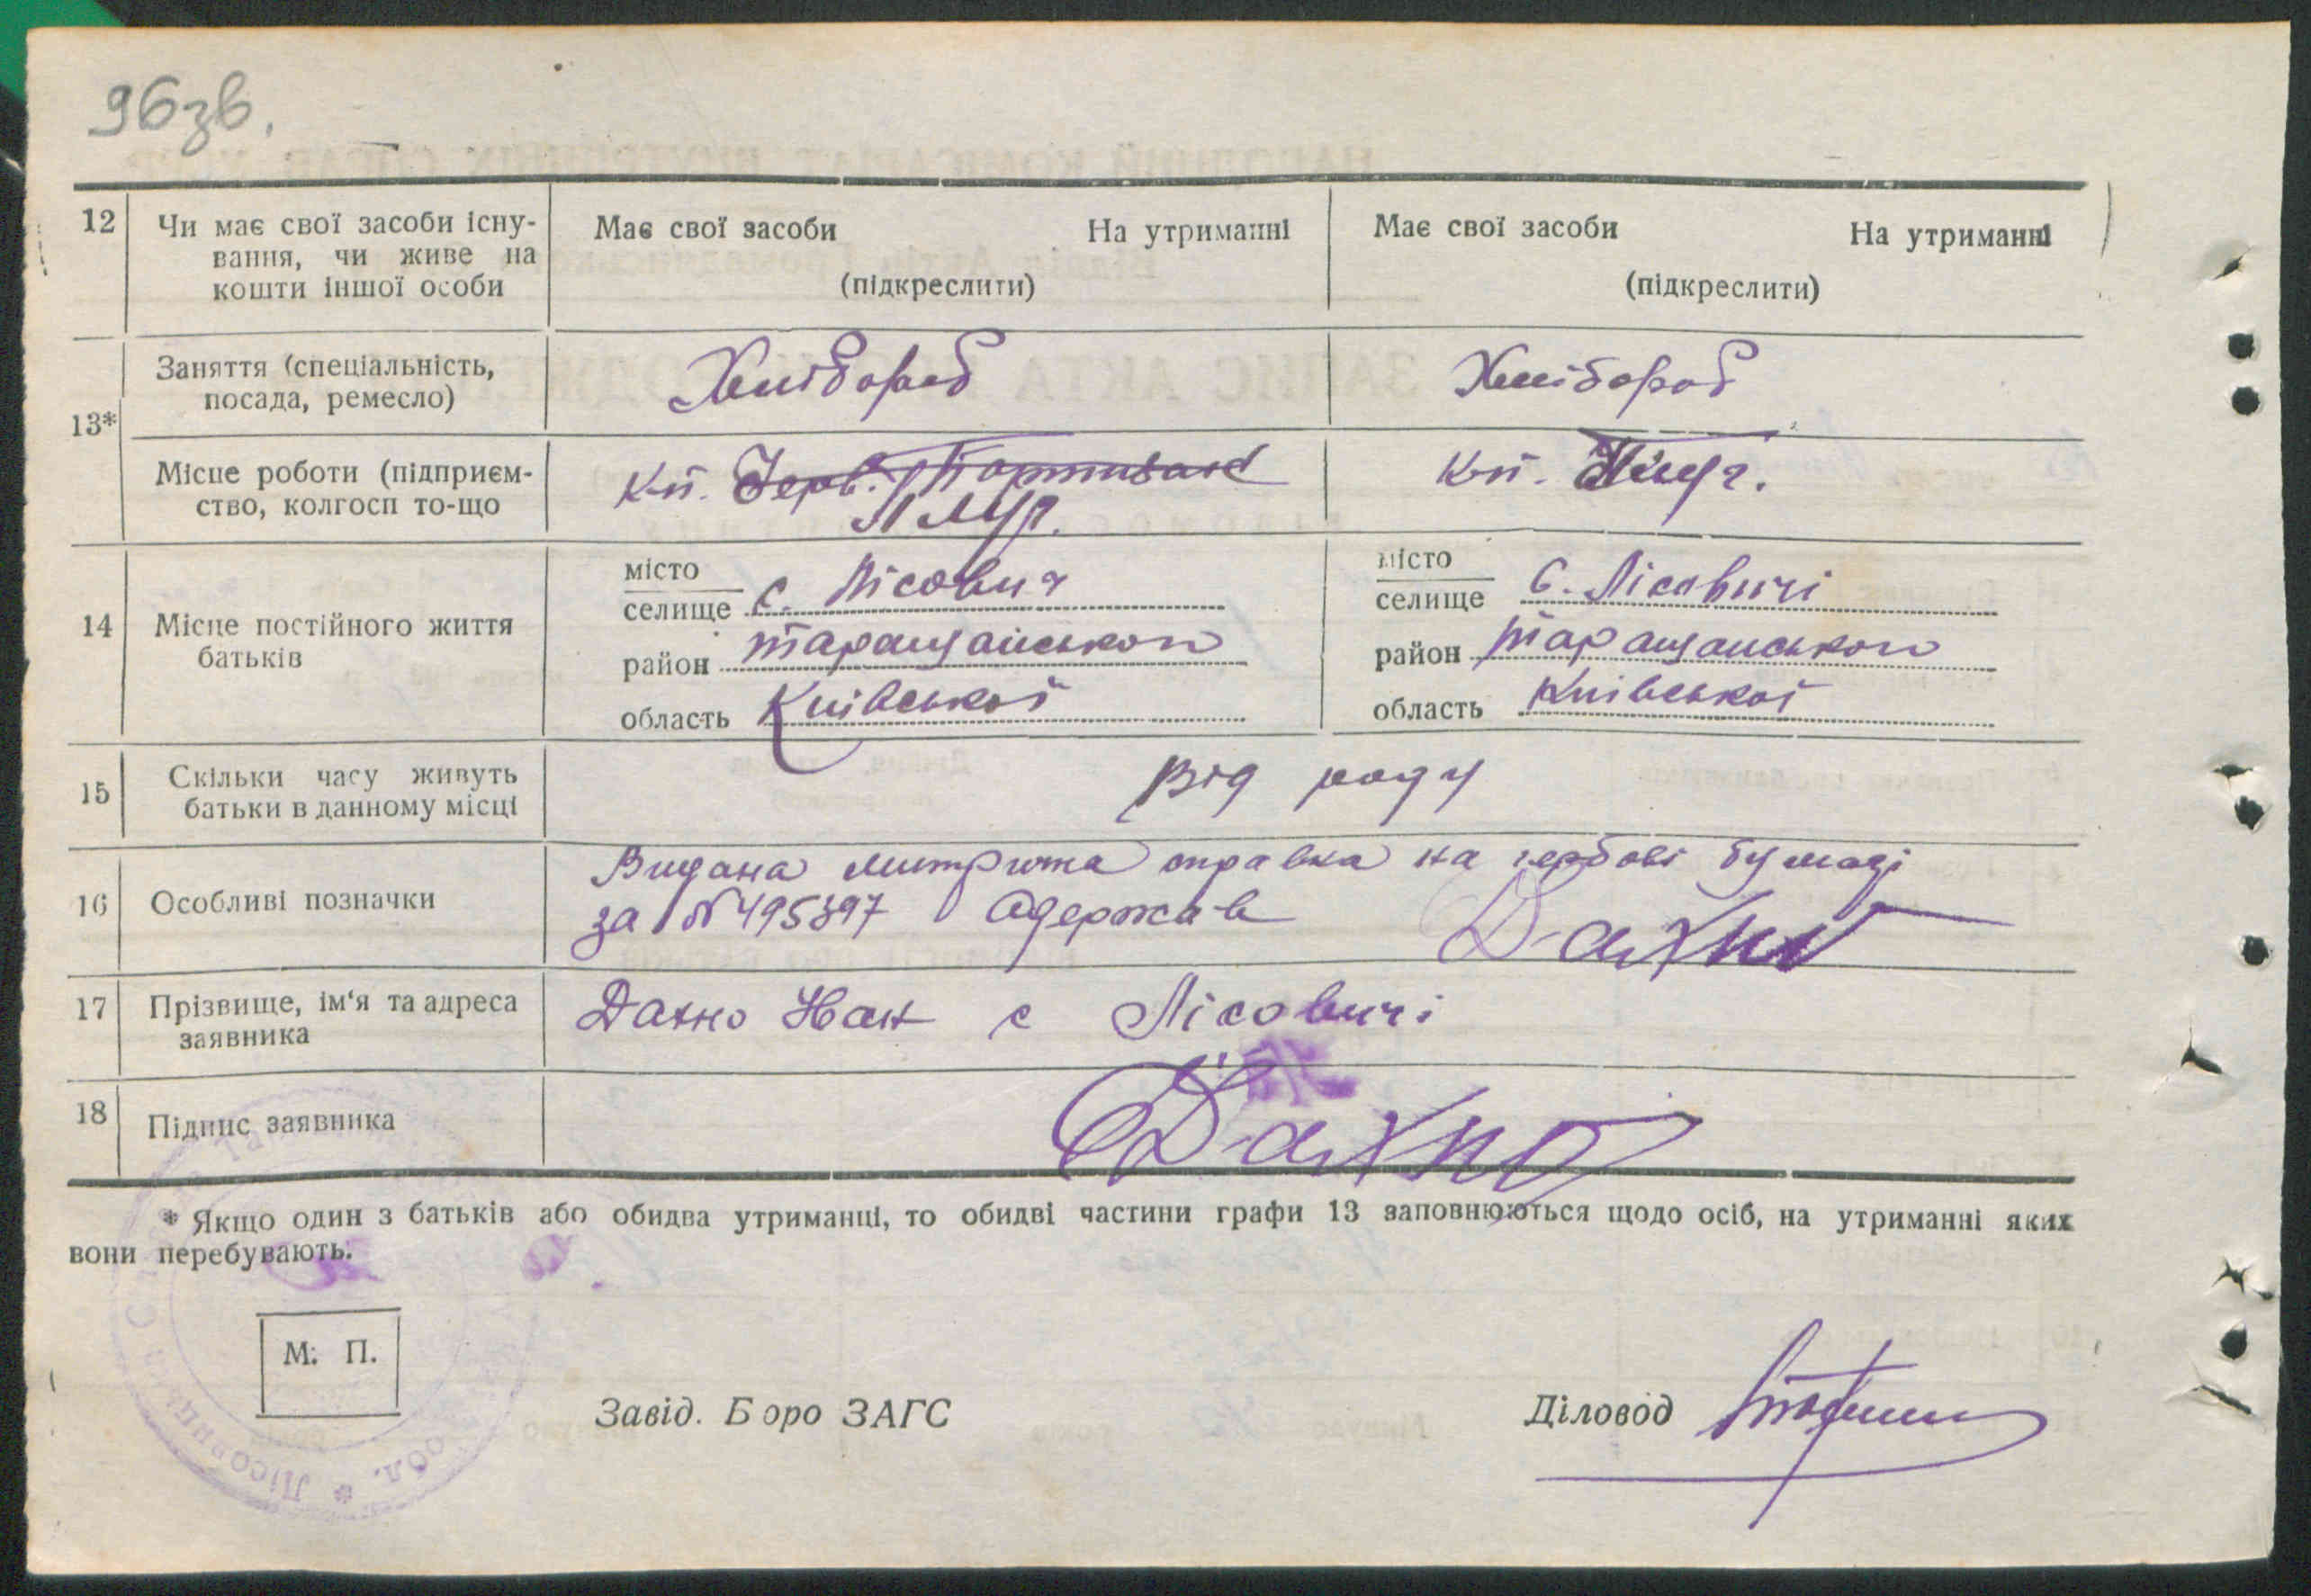 96зв.
12 Чи має свої засоби існу-
вання, чи живе на
кошти іншої особи
Має свої засоби На утриманні
(підкреслити)
Має свої засоби На утриманні
(підкреслити)
13*
Заняття (спеціальність,
посада, ремесло)
Хлібороб
Хлібороб
Місце роботи (підприєм-
ство, колгосп то-що
к-п. Черв. Партизан
к-п.
14 Місце постійного життя
батьків
місто
селище с. Лісович
район таращанського
область Київської
місто
селище с. Лісовичі
район таращанського
область Київської
15 Скільки часу живуть
батьки в данному місці
Від роду
16 Особливі позначки
Видана митрична справка на гербові бумазі
за № 495397 Одержав Дахно
17 Прізвище, ім'я та адреса
заявника
Дахно Іван с Лісовичі
18 Підпис заявника
Дахно
* Якщо один з батьків або обидва утриманці, то обидві частини графи 13 заповнюються щодо осіб, на утриманні яких
вони перебувають.
М. П.
Завід. Бюро ЗАГС
Діловод